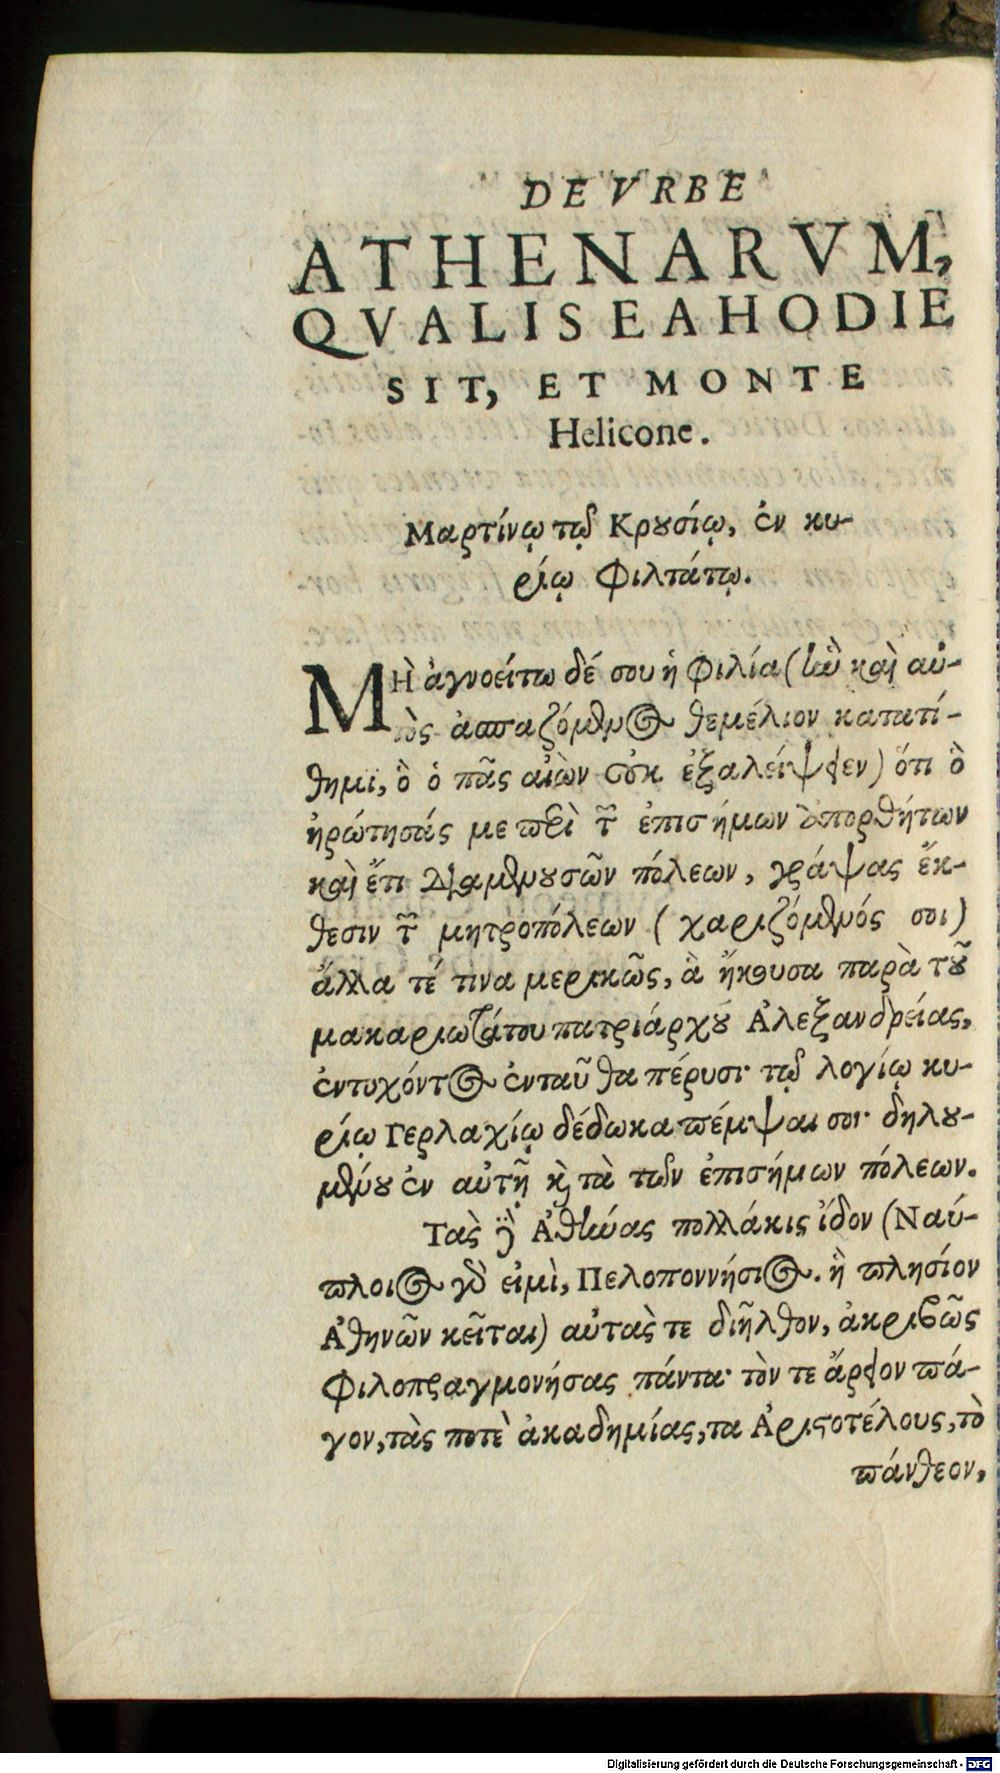 DE VRBE
ATHENARVM,
QVALIS EA HODIE
SIT, ET MONTE
Helicone.
Μαρτίνῳ τῷ Κρουσίῳ, ἐν κυ-
ρίῳ φιλτάτῳ.
ΜῊ ἀγνοείτω δέ σου ἡ φιλία (ἣν καὶ αὐ-
τὸς ἀσπαζόμενος θεμέλιον κατατί-
θημι, ὃ ὁ πᾶς αἰὼν οὐκ ἐξαλείψειεν) ὅτι ὃ
ἠρώτησάς με περὶ τῶν ἐπισήμων ἀπορθήτων
καὶ ἔτι διαμενουσῶν πόλεων, γράψας ἔκ-
θεσιν τῶν μητροπόλεων (χαριζόμενός σοι)
ἄλλα τέ τινα μερικῶς, ἃ ἤκουσα παρὰ τοῦ
μακαριωτάτου πατριάρχου Ἀλεξανδρείας,
ἐντυχόντος ἐνταῦθα πέρυσι· τῷ λογίῳ κυ-
ρίῳ Γερλαχίῳ δέδωκα πέμψαι σοι· δηλου-
μένου ἐν αὐτῇ καὶ τὰ τῶν ἐπισήμων πόλεων.
Τὰς δὲ Ἀθήνας πολλάκις ἴδον (Ναύ-
πλοιος γὰρ εἰμὶ, Πελοποννήσιος. ἣ πλησίον
Ἀθηνῶν κεῖται) αὐτὰς τε διῆλθον, ἀκριβῶς
φιλοπραγμονήσας πάντα· τὸν τε ἄρειον πά-
γον, τὰς ποτὲ ἀκαδημίας, τα Ἀριστοτέλους, τὸ
πάνθεον,
Digitalisierung gefördert durch die Deutsche Forschungsgemeinschaft - DFG